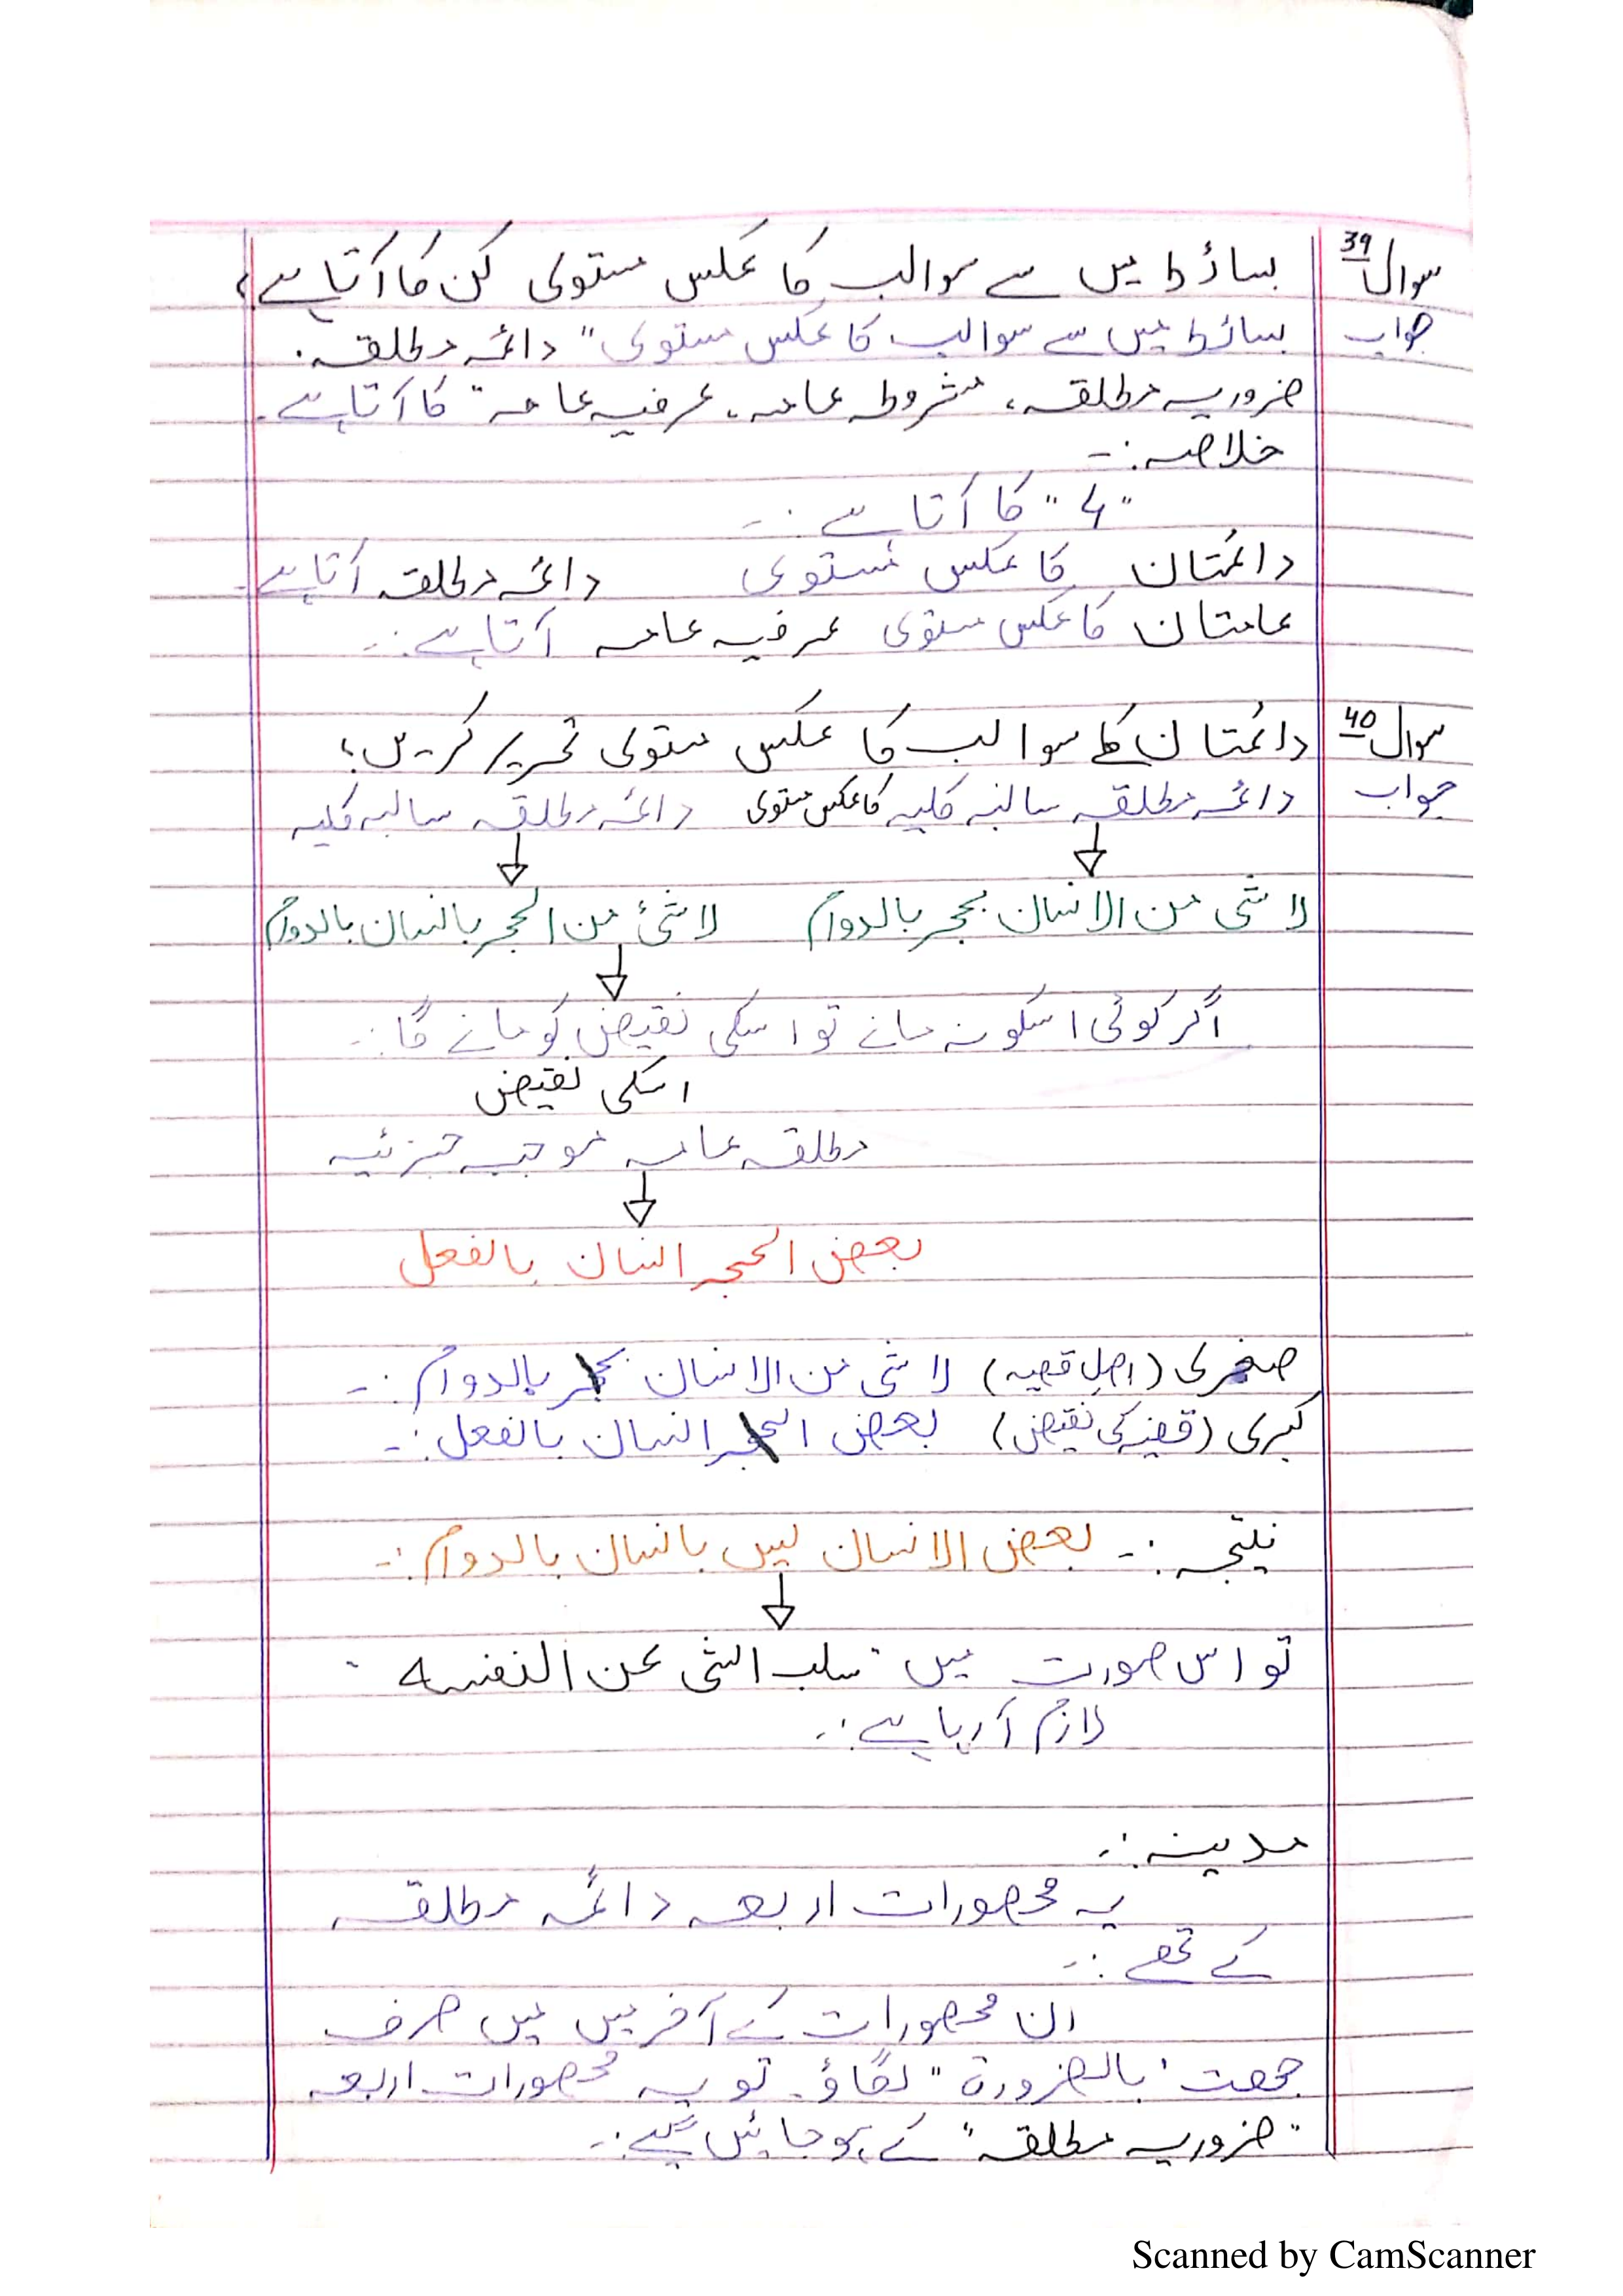 سوال 39 بسائط میں سے سوالب کا عکس مستوی کن کا آتا ہے؟
جواب بسائط میں سے سوالب کا عکس مستوی "دائمہ مطلقہ،
ضروریہ مطلقہ، مشروطہ عامہ، عرفیہ عامہ" کا آتا ہے۔
خلاصہ:-
"4" کا آتا ہے:-
دائمتان کا عکس مستوی دائمہ مطلقہ آتا ہے۔
عامتان کا عکس مستوی عرفیہ عامہ آتا ہے:-
سوال 40 دائمتان کے سوالب کا عکس مستوی تحریر کریں؟
جواب دائمہ مطلقہ سالبہ کلیہ کا عکس مستوی دائمہ مطلقہ سالبہ کلیہ
لا شئ من الانسان بحجر بالدوام لا شئ من الحجر بانسان بالدوام
اگر کوئی اسکو نہ مانے تو اسکی نقیض کو مانے گا:-
اسکی نقیض
مطلقہ عامہ موجبہ جزئیہ
بعض الحجر انسان بالفعل
صغری (اصل قضیہ) لا شئ من الانسان بحجر بالدوام:-
کبری (قضیہ کی نقیض) بعض الحجر انسان بالفعل:-
نتیجہ:- بعض الانسان لیس بانسان بالدوام:-
تو اس صورت میں "سلب الشئ عن النفسہ"
لازم آ رہا ہے:-
مدینہ:-
یہ محصورات اربعہ دائمہ مطلقہ
کے تھے:-
ان محصورات کے آخر میں میں صرف
جھت "بالضرورة" لگاؤ۔ تو یہ محصورات اربعہ
"ضروریہ مطلقہ" کے ہو جائیں گے:-
Scanned by CamScanner